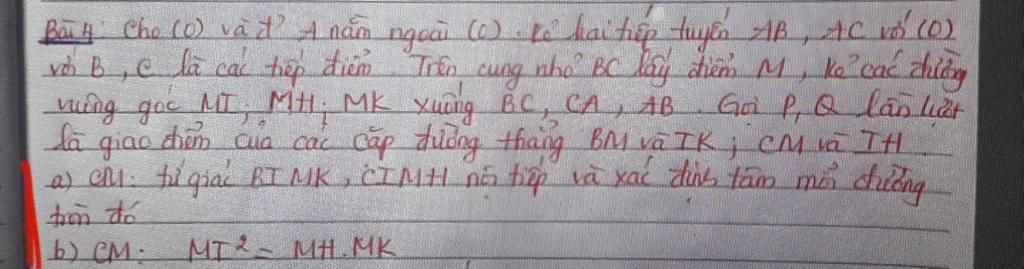 Bài 4: Cho (O) và đ' A nằm ngoài (O). Kẻ hai tiếp tuyến AB, AC với (O)
với B, C là các tiếp điểm. Trên cung nhỏ BC lấy điểm M, kẻ các đường
vuông góc MI, MH, MK xuống BC, CA, AB. Gọi P, Q lần lượt
là giao điểm của các cặp đường thẳng BM và IK; CM và IH
a) CM: tứ giác BIMK, CIMH nội tiếp và xác định tâm mỗi đường
tròn đó
b) CM: MI² = MH.MK